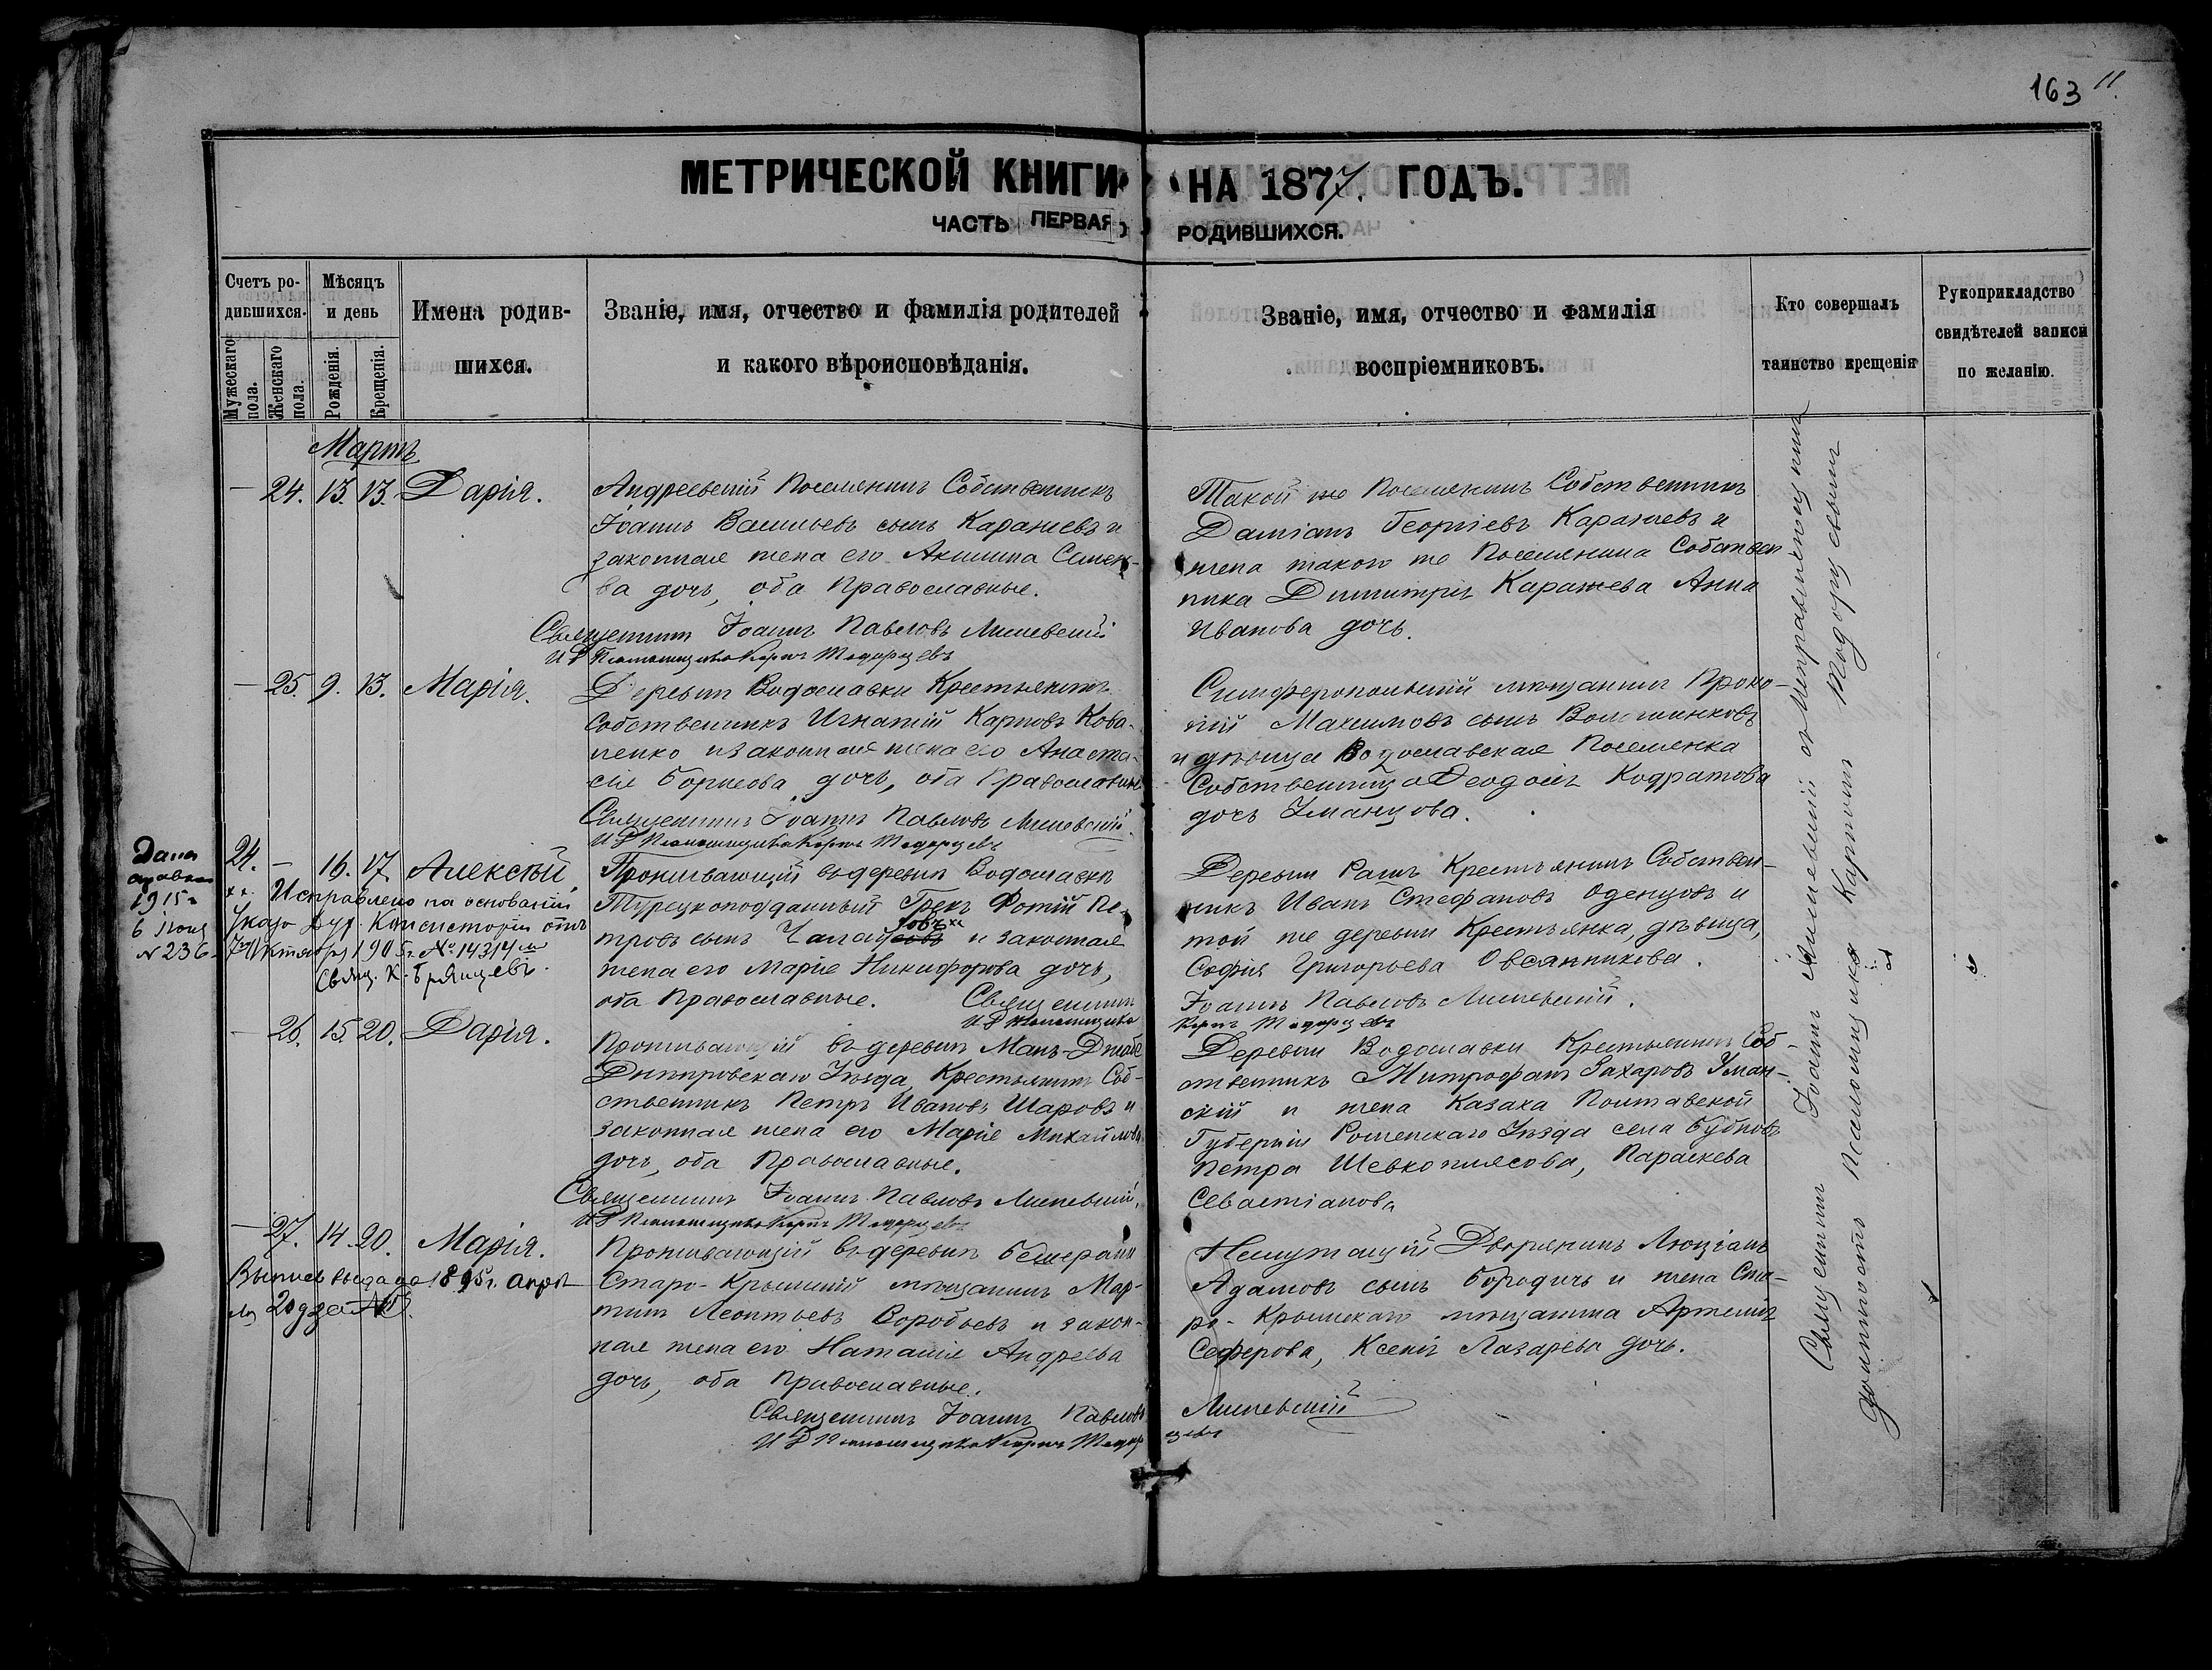 163 11.
МЕТРИЧЕСКОЙ КНИГИ НА 1877. ГОДЪ.
ЧАСТЬ ПЕРВАЯ РОДИВШИХСЯ.
Счетъ ро-
дившихся.
Мужескаго пола.
Женскаго пола.
Мѣсяцъ
и день
Рожденія.
Крещенія.
Имена родив-
шихся.
Званіе, имя, отчество и фамилія родителей
и какого вѣроисповѣданія.
Званіе, имя, отчество и фамилія
воспріемниковъ.
Кто совершалъ
таинство крещенія
Рукоприкладство
свидѣтелей записи
по желанію.
Мартъ
— 24. 13. 13. Дарія.
Андреевскій Поселянинъ Собственникъ
Іоаннъ Васильевъ сынъ Каражевъ и
законная жена его Акилина Семено-
ва дочь, оба Православные.
Такой же Поселянинъ Собственникъ
Даміанъ Георгіевъ Каражевъ и
жена такого же Поселянина Собствен
ника Димитрія Каражева Анна
Иванова дочь.
Священникъ Іоаннъ Павловъ
И Д Псаломщика Карпъ
— 25. 9. 13. Марія.
Деревни Водославки Крестьянинъ
Собственникъ Игнатій Карповъ Кова-
ленко и законная жена его Анаста-
сія Борисова дочь, оба Православные
Симферопольскій мѣщанинъ Проко-
пій Максимовъ сынъ
и дѣвица Водославская Поселянка
Собственница Ѳеодосія Кодратова
дочь Уманцова.
Священникъ Іоаннъ Павловъ
И Д Псаломщика Карпъ
24. — 16. 17. Алексѣй.
Дана
справка
1915 г
6 Іюня
№ 236
хх. Исправлено на основаніи
Указа Дух. Консисторіи отъ
7го Октября 1905 г. № 14314
Свящ. К. Брянцевъ.
Проживающій въ деревнѣ Водославкѣ
Турецкоподданный Грекъ Фотій Пе-
тровъ сынъ и законная
жена его Марія Никифорова дочь,
оба Православные. Священникъ
И Д Псаломщика
Деревни Крестьянинъ Собствен-
никъ Иванъ Стефановъ Оденцовъ и
той же деревни Крестьянка, дѣвица,
Софія Григорьева Овсянникова.
Іоаннъ Павловъ
Карпъ
— 26. 15. 20. Дарія.
Проживающій въ деревнѣ
Днѣпровскаго Уѣзда, Крестьянинъ Соб-
ственникъ Петръ Ивановъ Шаровъ и
законная жена его Марія Михайлова
дочь, оба Православные.
Деревни Водославки Крестьянинъ Соб-
ственникъ Митрофанъ Захаровъ Уман-
скій и жена Казака Полтавской
Губерніи Роменскаго Уѣзда села
Петра Шевкоплясова, Параскева
Севастіанова
Священникъ Іоаннъ Павловъ
И Д Псаломщика Карпъ
— 27. 14. 20. Марія.
Выпись выдана 1895 г. Апрѣ-
ля 20 дня за №
Проживающій въ деревнѣ
Старо-Крымскій мѣщанинъ Мар-
тинъ Леонтьевъ Воробьевъ и закон-
ная жена его Наталія Андреева
дочь, оба Православные.
Дворянинъ Люціанъ
Адамовъ сынъ Бородичъ и жена Ста-
ро-Крымскаго мѣщанина Артемія
Сеферова, Ксенія Лазарева дочь.
Священникъ Іоаннъ Павловъ
И Д Псаломщика Карпъ
Священникъ Іоаннъ
должность Псаломщика Карпомъ